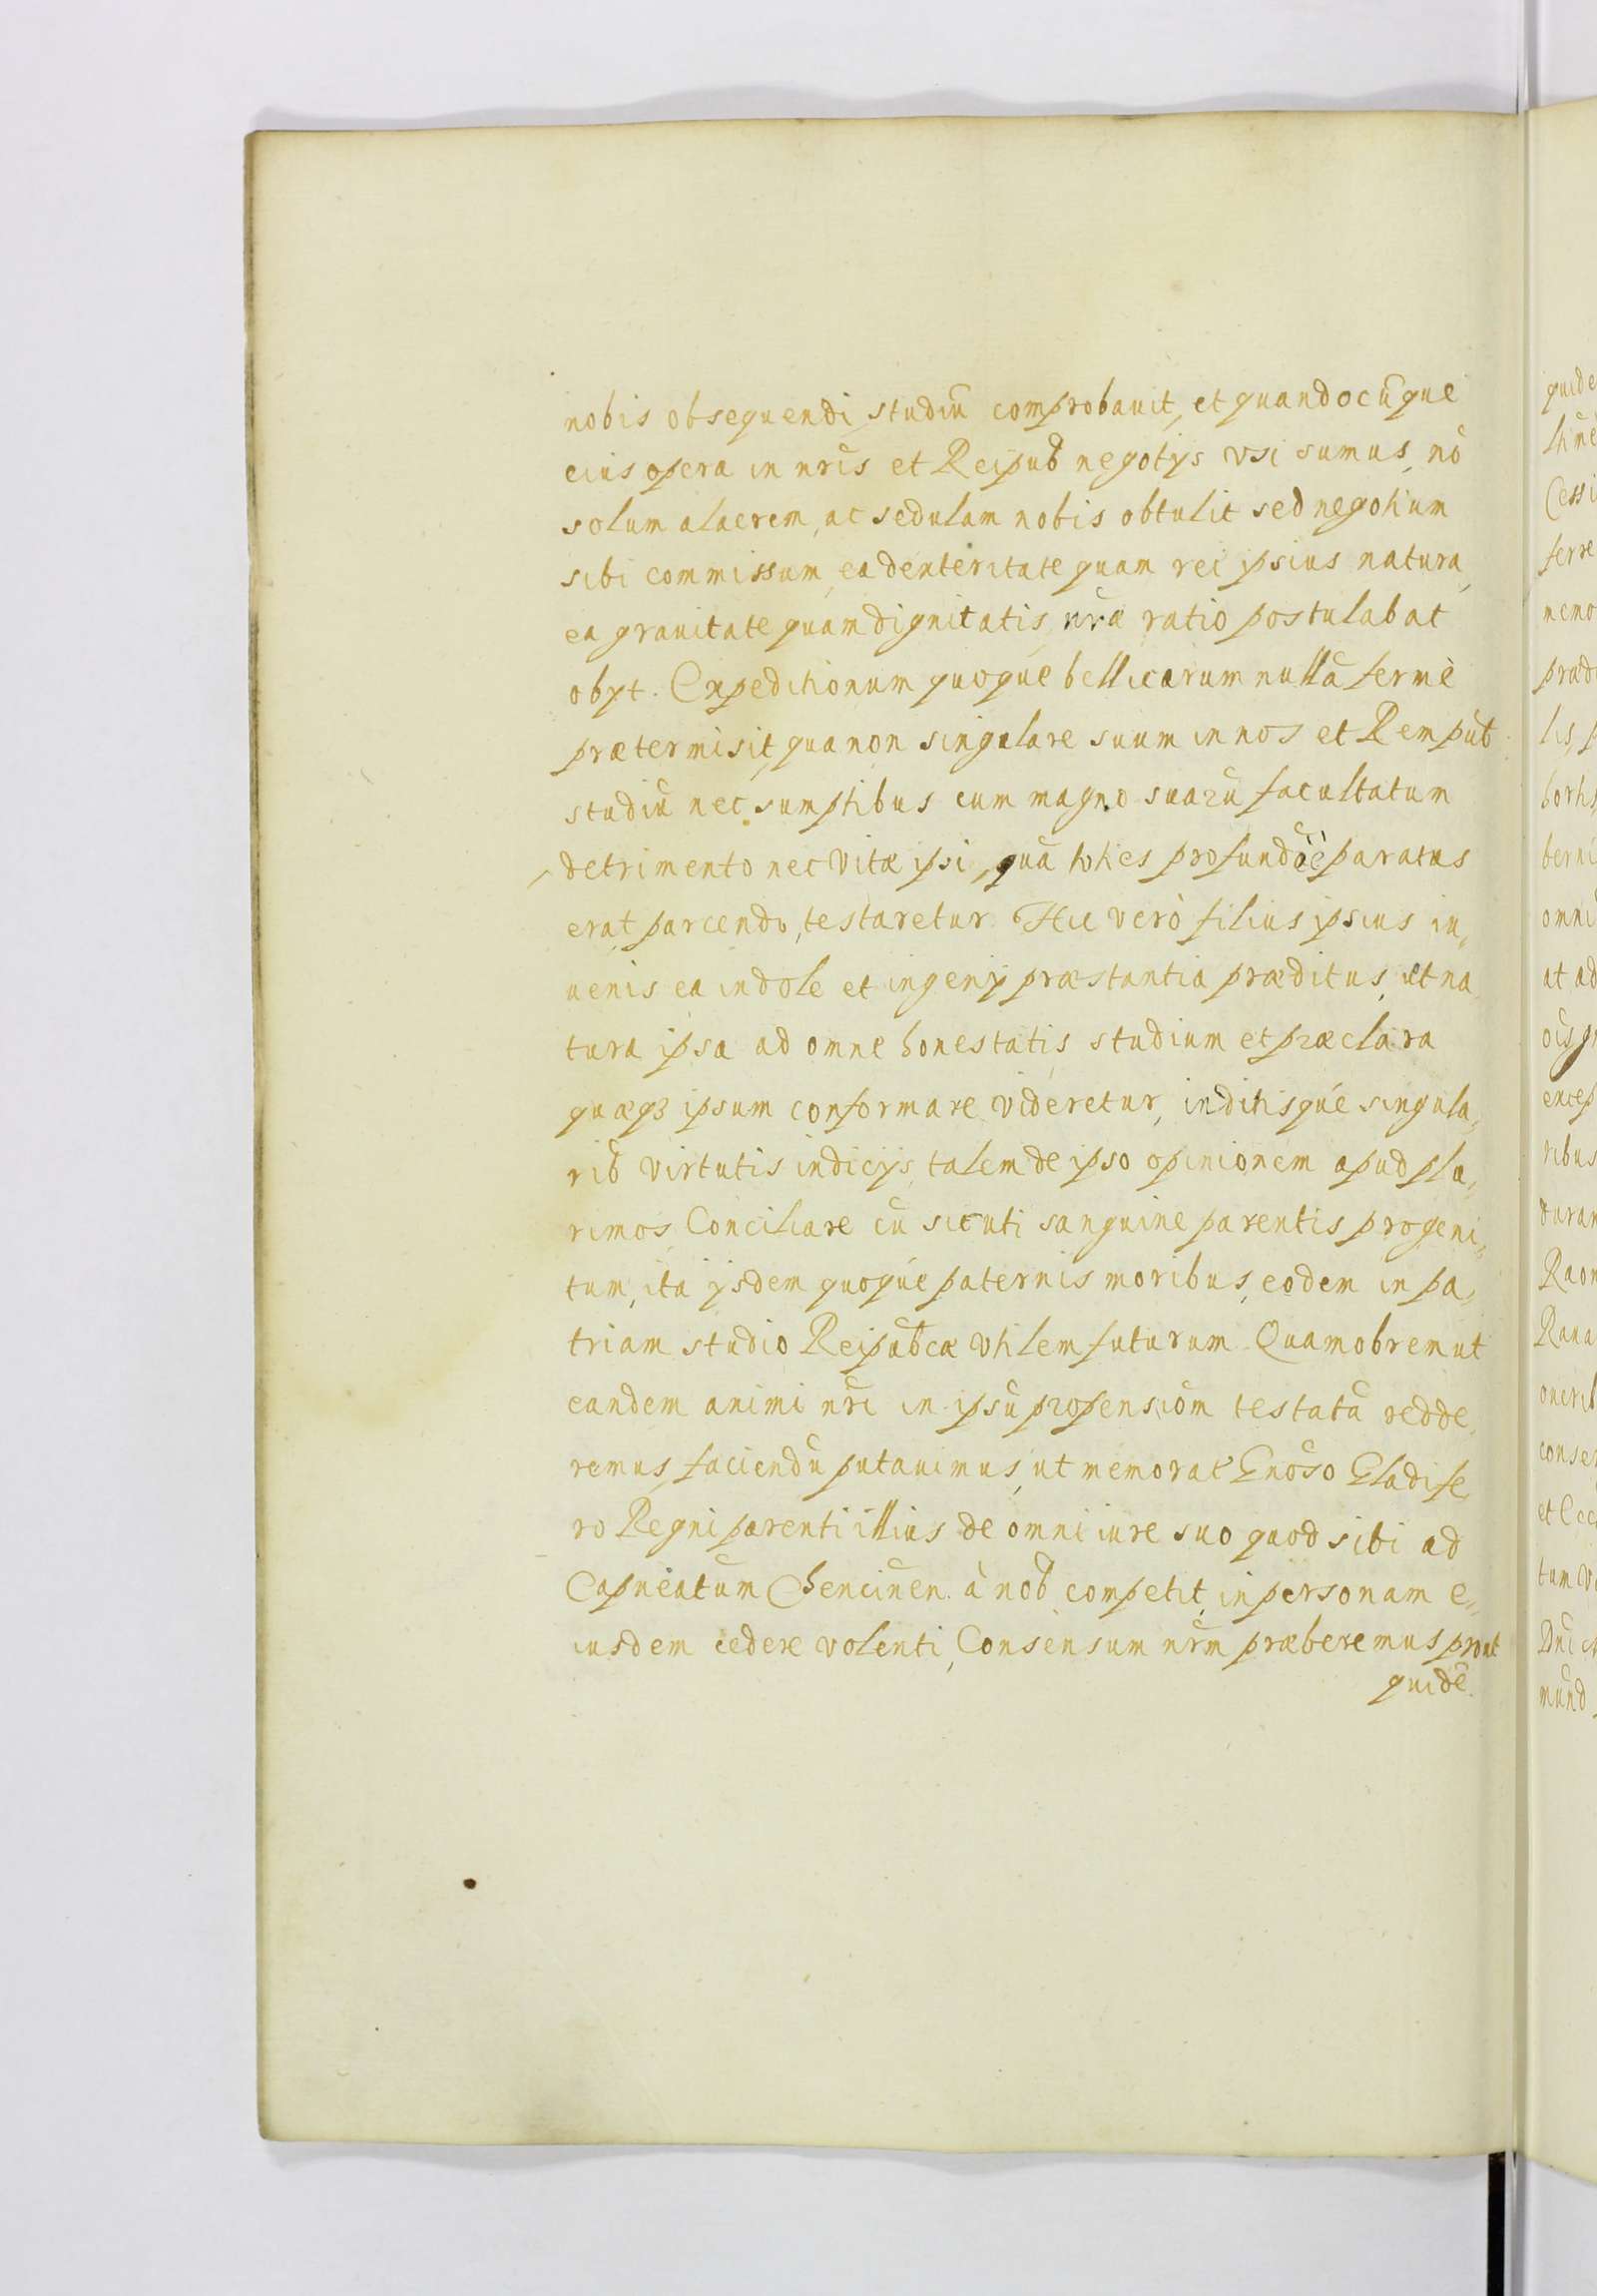 nobis obsequendi studiũ comprobauit, et quandocũque
eius opera in nr̃is et Reipub negotijs vsi sumus, nõ
solum alacrem, ac sedulam nobis obtulit sed negotium
sibi commissum, ea dexteritate quam rei ipsius natura,
ea grauitate quam dignitatis nr̃æ ratio postulabat
obijt. Expeditionum quoque bellicarum nullã fermè
prætermisit, qua non singulare suum in nos et Rempub
studiũ nec sumptibus cum magno suarũ facultatum
detrimento nec vitæ ipsi, quã toties profundĕ paratus
erat parcendo, testaretur. Hic verò filius ipsius iu,,
uenis ea indole et ingenij præstantia præditus, ut na
tura ipsa ad omne honestatis studium et præclara
quæqȝ ipsum conformare videretur, inditisque singula,,
rib virtutis indicijs, talem de ipso opinionem apud plu,,
rimos Conciliare cũ sicuti sanguine parentis progeni,,
tum, ita ijsdem quoque paternis moribus, eodem in pa,,
triam studio Reipubcæ vtilem futurum. Quamobrem ut
eandem animi nr̃i in ipsũ propensiõm testatã redde,
remus, faciendũ putauimus, ut memorat Gnõso Gladife,
ro Regni parenti illius de omni iure suo quod sibi ad
Capneatum Chencinen. à nob competit, in personam e,,
iusdem cedere volenti, Consensum nr̃m præberemus prout
quidẽ.
quide
Cessi
ferre
memo
prædi
omni
at ad
ribus
duran
conser
mund